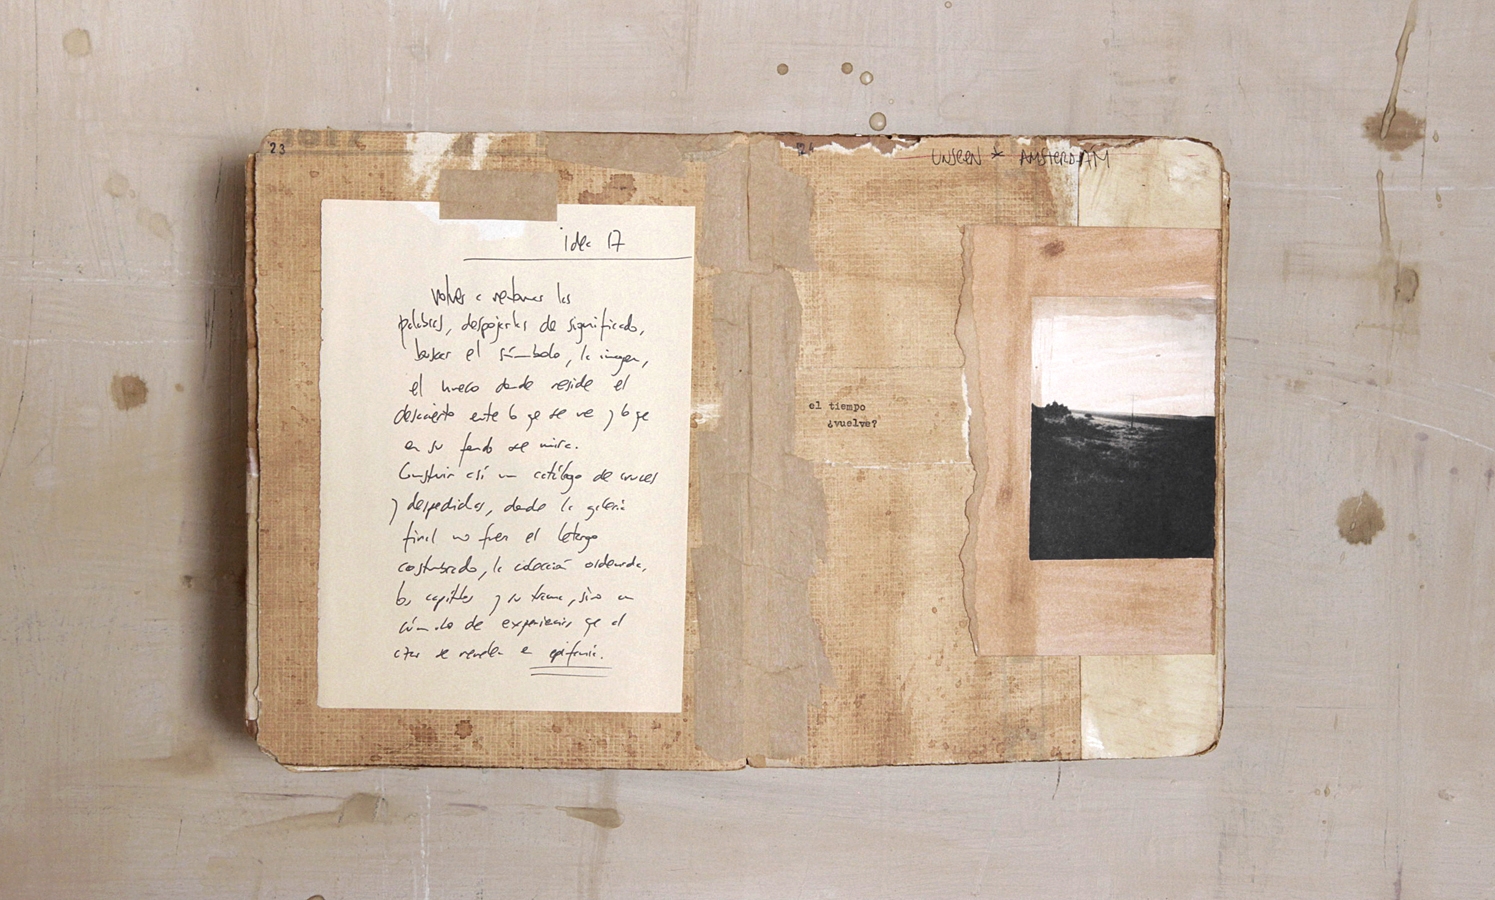 23
idea 17
volver a nombrar las
palabras, despojarlas de significado,
buscar el símbolo, la imagen,
el hueco donde reside el
desacierto entre lo que se ve y lo que
en su fondo se mira.
Construir así un catálogo de cruces
y despedidas, donde la galería
final no fuera el letargo
costumbrado, la colección ordenada,
los capítulos y su trama, sino un
cúmulo de experiencias que al
azar se revelen en epifanía.
24
UNSEEN * AMSTERDAM
el tiempo
¿vuelve?